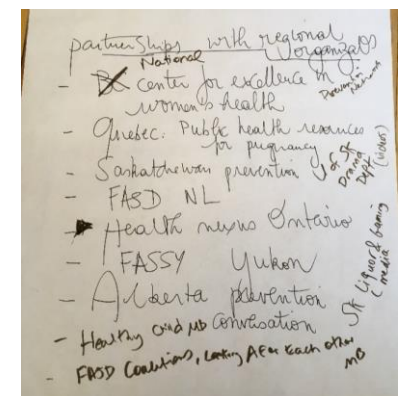 partnerships with regional organizats
National
- BC center for excellence in
women's health
Prevention Network
- Quebec: Public health resources
for pregnancy
- Saskatchewan prevention
U of SK Drama Dept (videos)
- FASD NL
- Health nexus Ontario
- FASSY Yukon
- Alberta prevention
Conversation
SK Liquor & Gaming
(media
- Healthy Child MB
- FASD Coalitions, Linking each other
MB